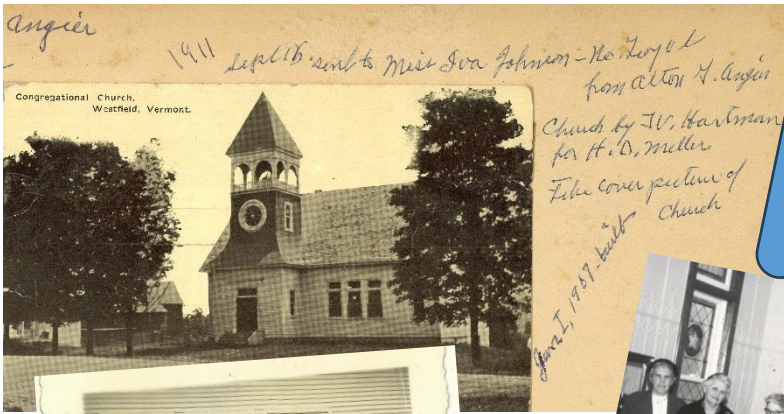 Angier
1911 Sept 16 sent to Miss Iva Johnson - No
from Alton T. Angier
Congregational Church,
Westfield, Vermont.
Church by W. Hartman
for H. D. Miller
Like cover picture of
Church
1907 - built